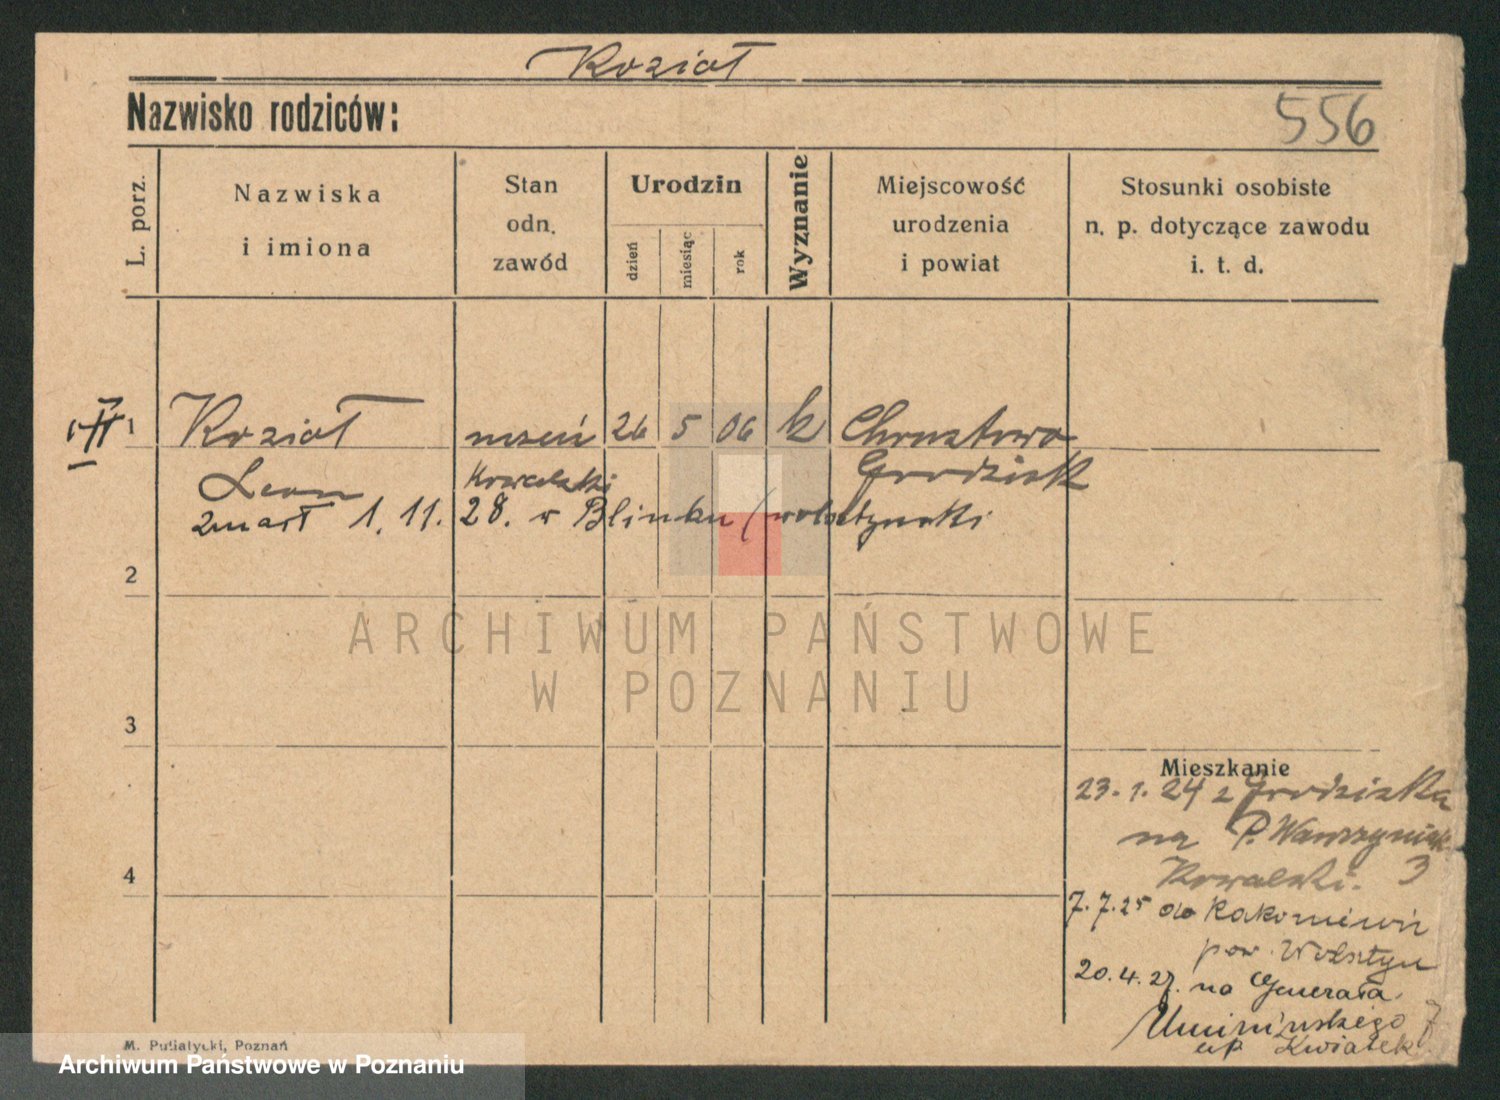 Kozioł
Nazwisko rodziców:
556
L. porz.
Nazwiska
i imiona
Stan
odn.
zawód
Urodzin
dzień
miesiąc
rok
Wyznanie
Miejscowość
urodzenia
i powiat
Stosunki osobiste
n. p. dotyczące zawodu
i. t. d.
1 Kozioł uczeń 26 5 06 k Chrustowo
Leon Kowalski Grodzisk
zmarł 1. 11. 28. w Blinku (wolsztynski
2
ARCHIWUM PAŃSTWOWE
W POZNANIU
3
Mieszkanie
23. 1. 24 z Grodziska
na P. Wawrzyniak
Kowalski. 3
4
7. 7. 25 do Rakoniewic
pow. Wolsztyn
20. 4. 27. na Generała
Umińskiego 7
up. Kwiatek
M. Putiatycki, Poznań
Archiwum Państwowe w Poznaniu